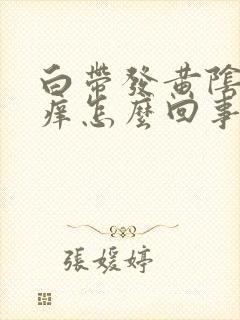 白帶發黃陰
痒怎麼回事
張媛婷